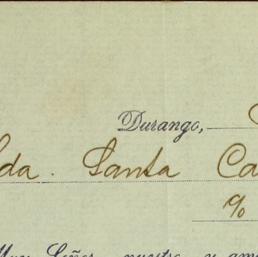 Durango,
da. Santa Ca
%
Muy Señor nuestro y am